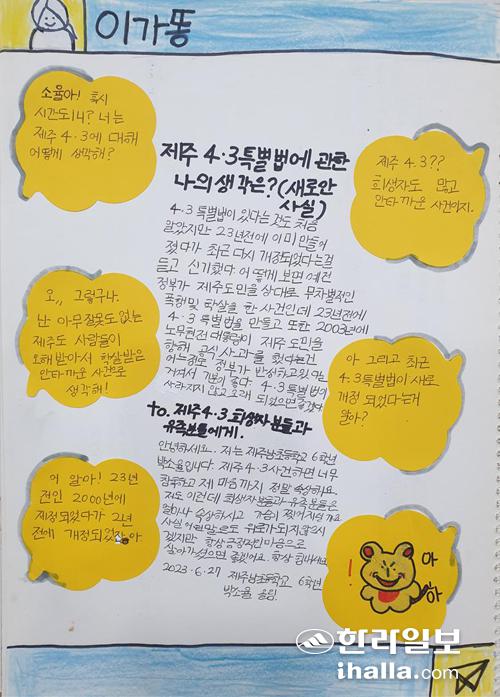 이가똥
소율아! 혹시
시간되니? 너는
제주 4.3에 대해
어떻게 생각해?
제주 4.3??
희생자도 많고
안타까운 사건이지.
오,, 그렇구나.
난 아무잘못도없는
제주도 사람들이
오해받아서 학살받은
안타까운 사건으로
생각해!
아 그리고 최근
4.3특별법이 새로
개정되었다는거
알아?
어 알아! 23년
전인 2000년에
제정되었다가 2년
전에 개정되었잖아
!
아
하
제주 4·3특별법에 관한
나의 생각은?(새로안
사실)
4.3 특별법이 있다는 것도 처음
알았지만 23년전에 이미 만들어
졌다가 최근 다시 개정되었다는걸
듣고 신기했다 어떻게 보면 예전
정부가 제주도민을 상대로 무차별적인
폭행및 학살을 한 사건인데 23년전에
4.3 특별법을 만들고 또한 2003년에
노무현전 대통령이 제주 도민을
향해 공식 사과를 했다는건
어느정도 정부가 반성하고있
겨져서 기분이 좋다 4.3특별법이
사라지지 않고 오래 되었으면 좋겠다
to. 제주4·3 희생자분들과
유족분들에게.
안녕하세요. 저는 제주남초등학교 6학년
박소율입니다. 제주 4.3사건하면 너무
참혹하고 제 마음까지 정말 속상해요.
저도 이런데 희생자분들과 유족분들은
얼마나 속상하시고 가슴이 찢어지실까요
사실 어떤말로도 위로가되지않으시
겠지만 항상 긍정적인마음으로
살아가셨으면 좋겠어요. 항상 힘내세요
2023.6.27 제주남초등학교 6학년
박소율 올림.
한라일보
ihalla.com